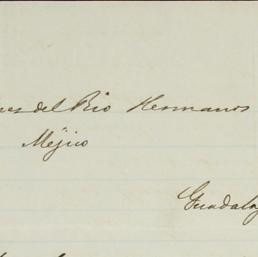 del Rio Hermanos
Méjico
Guadalaj